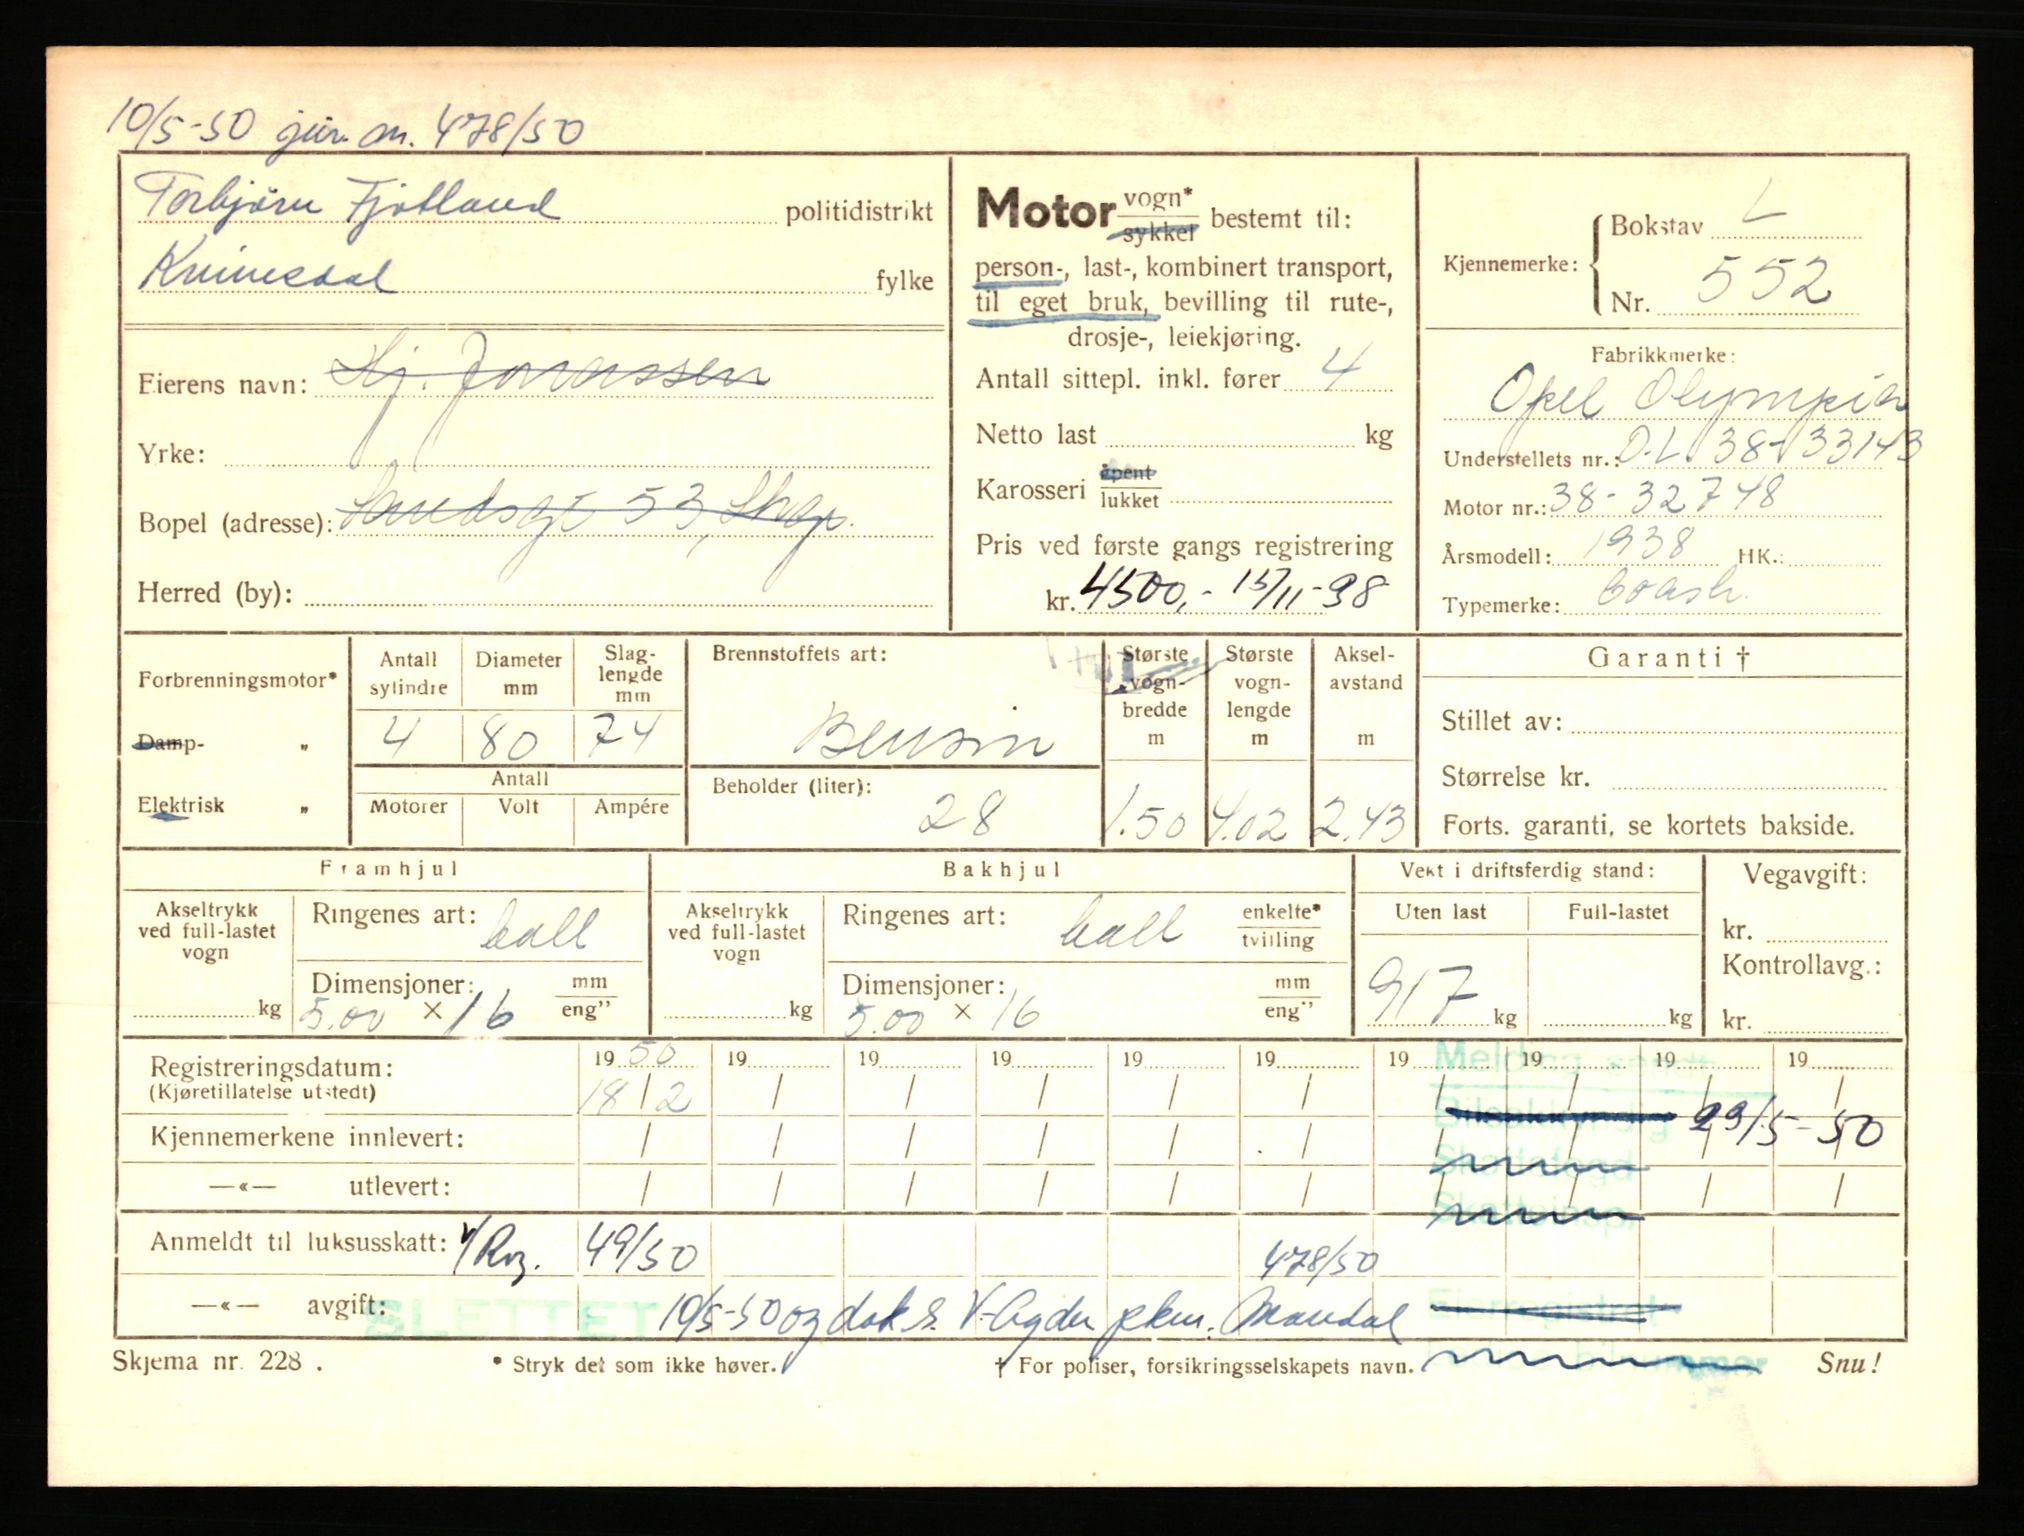 10/5-50 jnr. an. 478/50
Torbjörn Fjotland politidistrikt
Kvinesdal fylke
Eierens navn: Hj. Jonassen
Yrke:
Bopel (adresse): Sandsgt 53, Skgr.
Herred (by):
Motor vogn* sykkel bestemt til:
person-, last-, kombinert transport,
til eget bruk, bevilling til rute-,
drosje-, leiekjøring.
Antall sittepl. inkl. fører 4
Netto last kg
Karosseri åpent lukket
Pris ved første gangs registrering
kr. 4500,- 15/11-38
Kjennemerke: Bokstav L
Nr. 552
Fabrikkmerke:
Opel Olympia
Understellets nr.: O.L. 38-33143
Motor nr.: 38-32748
Årsmodell: 1938 HK.:
Typemerke: Coash.
Forbrenningsmotor*
Damp- "
Elektrisk "
Antall sylindre Diameter mm Slag-lengde mm
4 80 74
Antall
Motorer Volt Ampére
Brennstoffets art:
Bensin
Beholder (liter):
28
Største vogn-bredde m Største vogn-lengde m Aksel-avstand m
1.50 4.02 2.43
Garanti †
Stillet av:
Størrelse kr.
Forts. garanti, se kortets bakside.
Framhjul
Akseltrykk ved full-lastet vogn kg
Ringenes art: ball
Dimensjoner: mm eng"
5.00 × 16
Bakhjul
Akseltrykk ved full-lastet vogn kg
Ringenes art: ball enkelte* tvilling
Dimensjoner: mm eng"
5.00 × 16
Vekt i driftsferdig stand:
Uten last Full-lastet
917 kg kg
Vegavgift:
kr.
Kontrollavg.:
kr.
Registreringsdatum: 19 50 19 19 19 19 19 19 19 19 19
(Kjøretillatelse utstedt) 18/2 / / / / / / / / /
Melding sendt
Bilsakkyndig 29/5-50
Kjennemerkene innlevert: / / / / / / / / / /
Skattefogd
—«— utlevert: / / / / / / / / / /
Skatteinsp.
Anmeldt til luksusskatt: 49/50 478/50
—«— avgift:
SLETTET 10/5-50 og dok s. V-Agder pkm. Mandal
Eierregistret
Skjema nr. 228 . * Stryk det som ikke høver. † For poliser, forsikringsselskapets navn. Snu!